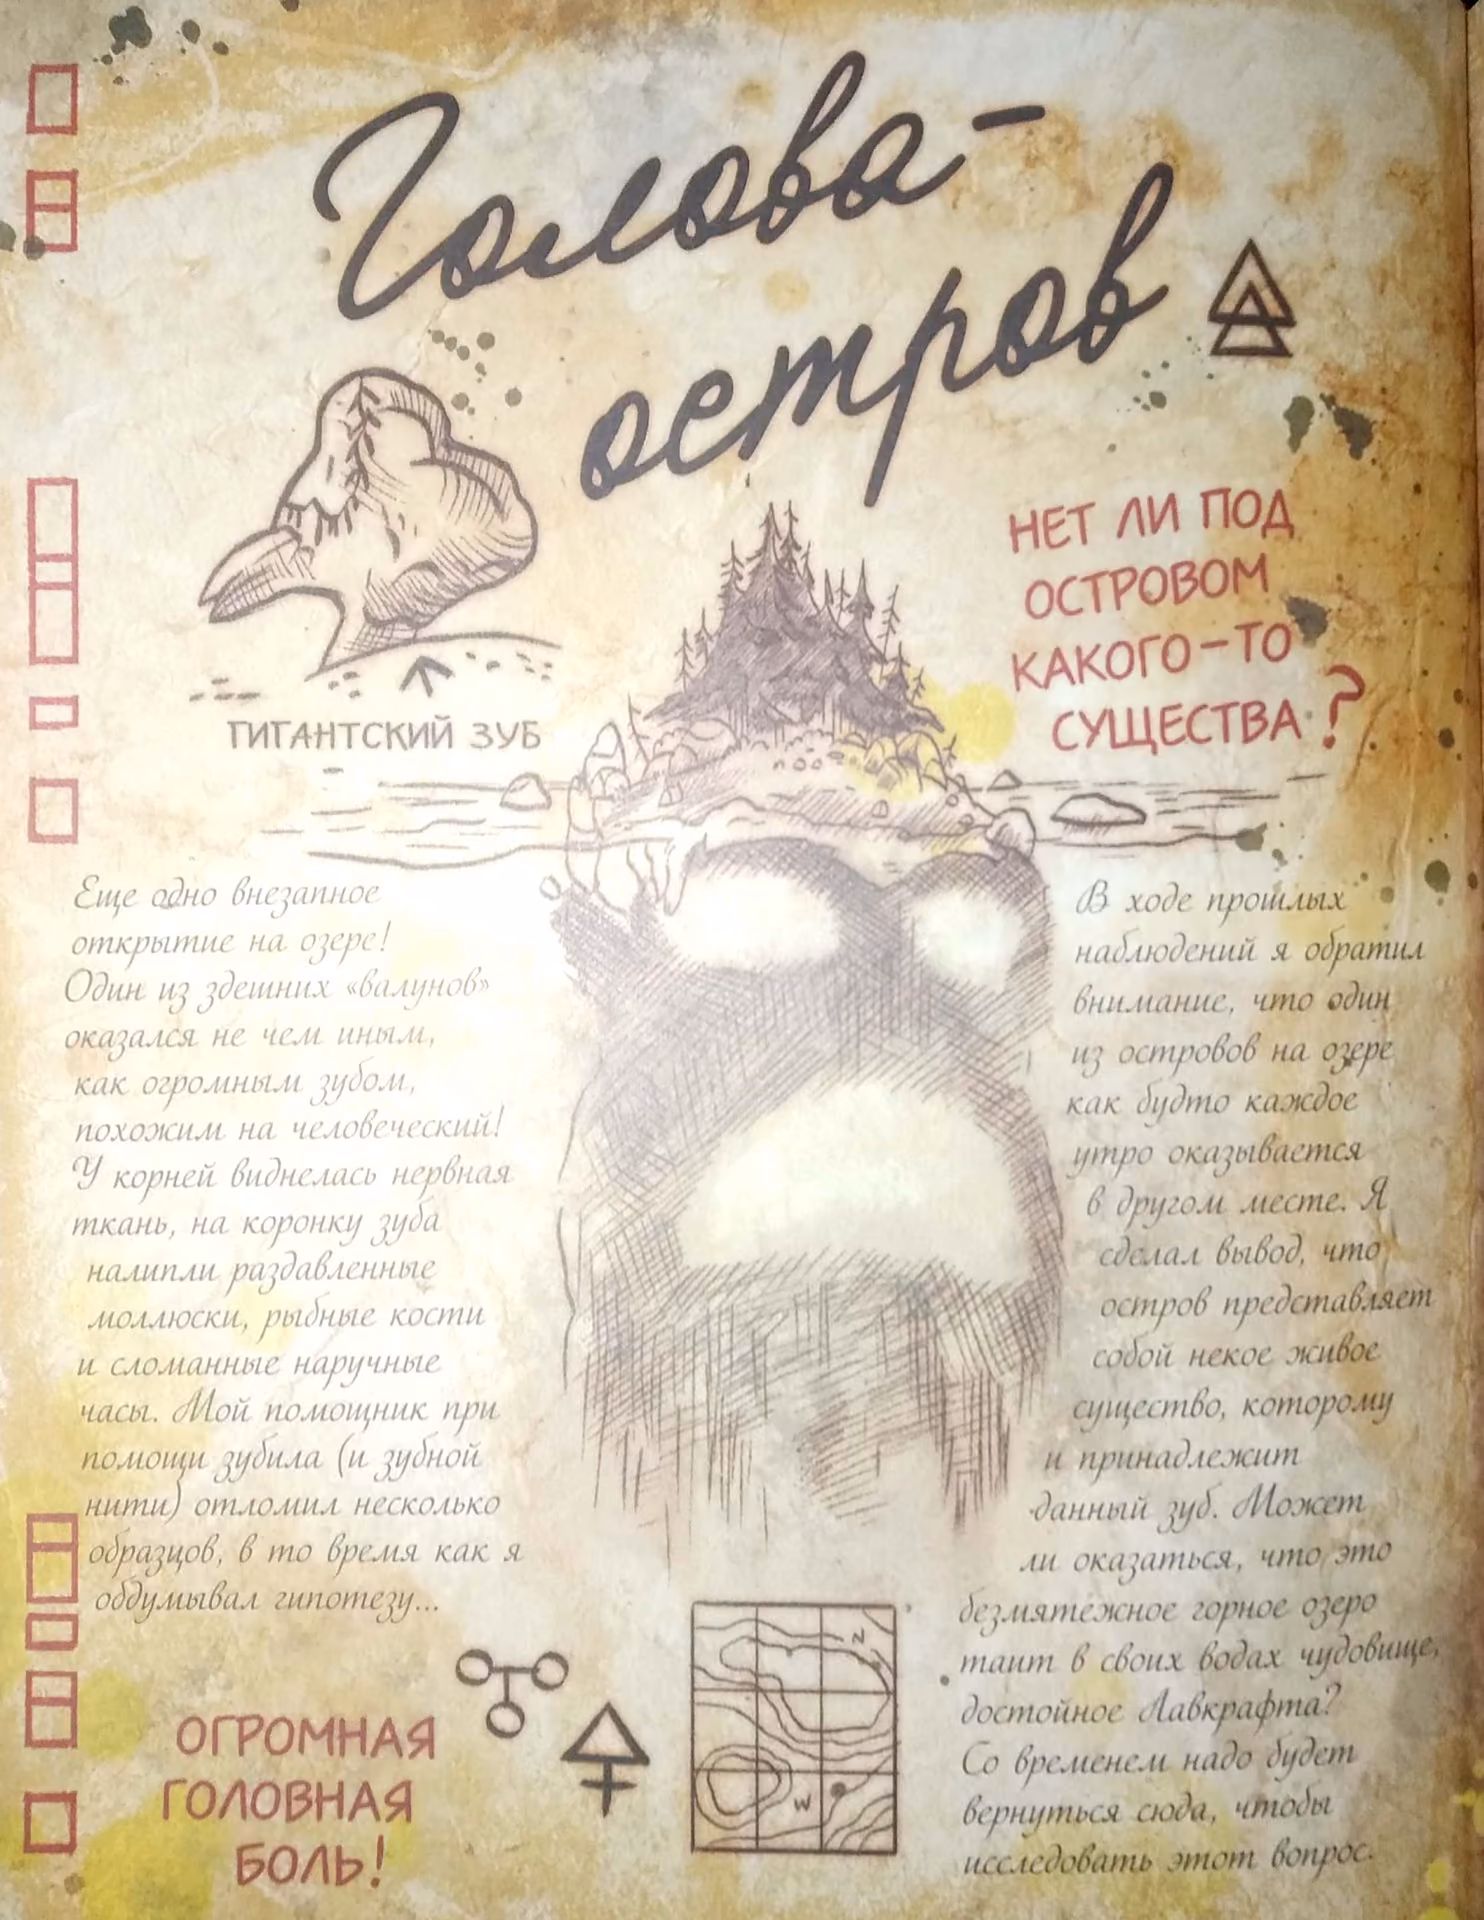 Голова-
остров
НЕТ ЛИ ПОД
ОСТРОВОМ
КАКОГО-ТО
СУЩЕСТВА?
ГИГАНТСКИЙ ЗУБ
Еще одно внезапное
открытие на озере!
Один из здешних «валунов»
оказался не чем иным,
как огромным зубом,
похожим на человеческий!
У корней виднелась нервная
ткань, на коронку зуба
налипли раздавленные
моллюски, рыбные кости
и сломанные наручные
часы. Мой помощник при
помощи зубила (и зубной
нити) отломил несколько
образцов, в то время как я
обдумывал гипотезу...
ОГРОМНАЯ
ГОЛОВНАЯ
БОЛЬ!
N
W
В ходе прошлых
наблюдений я обратил
внимание, что один
из островов на озере
как будто каждое
утро оказывается
в другом месте. Я
сделал вывод, что
остров представляет
собой некое живое
существо, которому
и принадлежит
данный зуб. Может
ли оказаться, что это
безмятежное горное озеро
таит в своих водах чудовище,
достойное Лавкрафта?
Со временем надо будет
вернуться сюда, чтобы
исследовать этот вопрос.